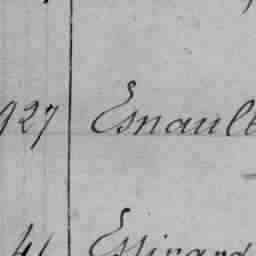 927 Esnault
41 Essirard